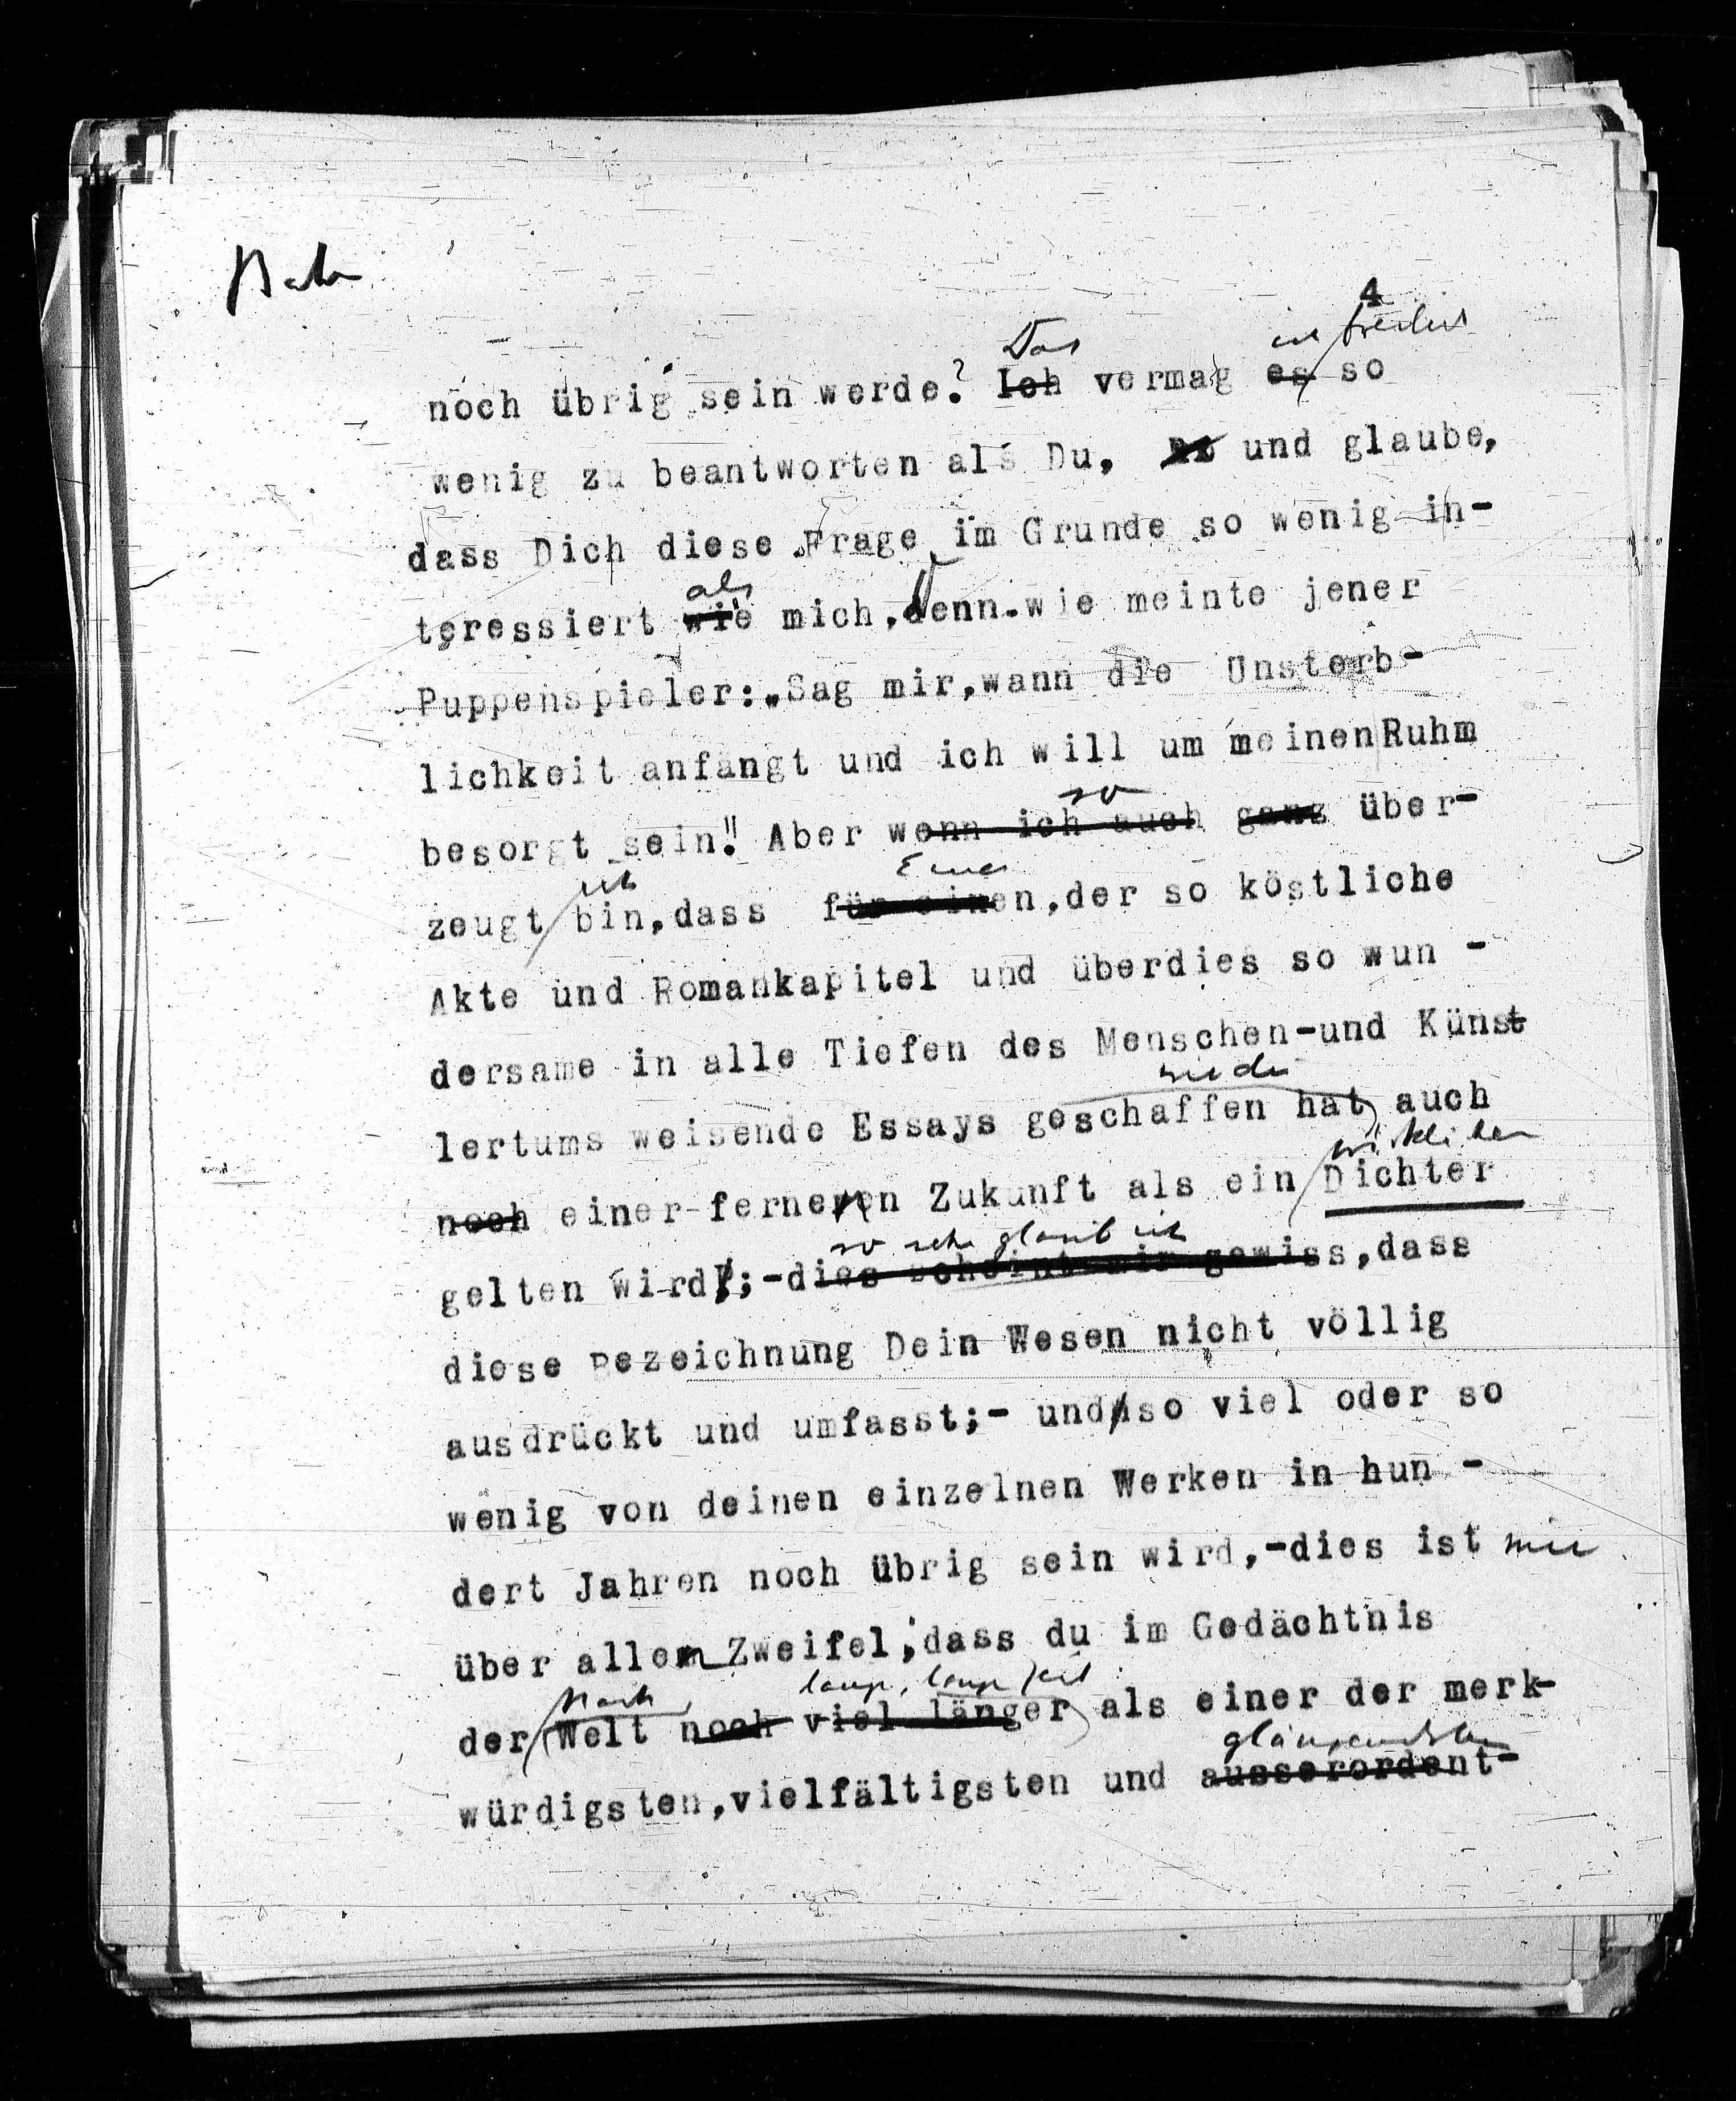 Bahr
4
Das ich freilich
noch übrig sein werde? Ich vermag es so
wenig zu beantworten als Du, und glaube,
dass Dich diese Frage im Grunde so wenig in-
als
teressiert wie mich, denn wie meinte jener
Puppenspieler: „Sag mir, wann die Unsterb-
lichkeit anfängt und ich will um meinen Ruhm
so
besorgt sein!" Aber wenn ich auch ganz über-
ich Einer
zeugt bin, dass für einen, der so köstliche
Akte und Romankapitel und überdies so wun -
dersame in alle Tiefen des Menschen-und Künst
lertums weisende Essays geschaffen hat, auch
wirklicher
noch einer fernen Zukunft als ein Dichter
so sehr glaub ich
gelten wird;-dies scheint mir gewiss, dass
diese Bezeichnung Dein Wesen nicht völlig
ausdrückt und umfasst;- und so viel oder so
wenig von deinen einzelnen Werken in hun -
dert Jahren noch übrig sein wird,-dies ist mir
über allem Zweifel, dass du im Gedächtnis
Nach lange, lange Zeit
der Welt noch viel länger als einer der merk-
glänzendsten
würdigsten, vielfältigsten und ausserordent-